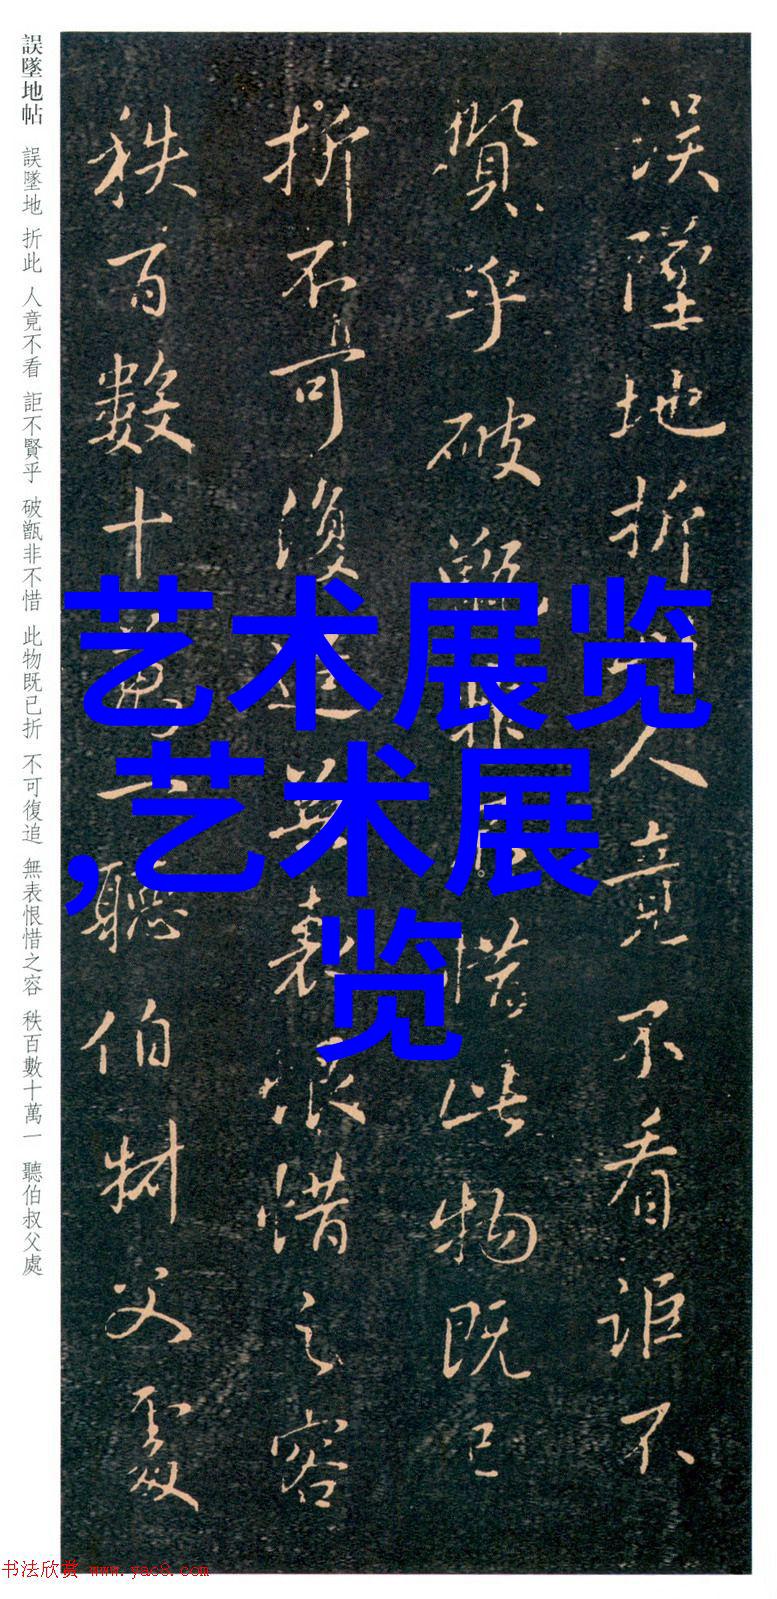 誤墜地折此人竟不看詎不
賢乎破甑非不惜此物既已
折不可復追無表恨惜之容
秩百數十萬一聽伯叔父處
誤墜地帖 誤墜地 折此 人竟不看 詎不賢乎 破甑非不惜 此物既已折 不可復追 無表恨惜之容 秩百數十萬一 聽伯叔父處
艺术展览
,艺术展
览
书法欣赏 www.yac8.com